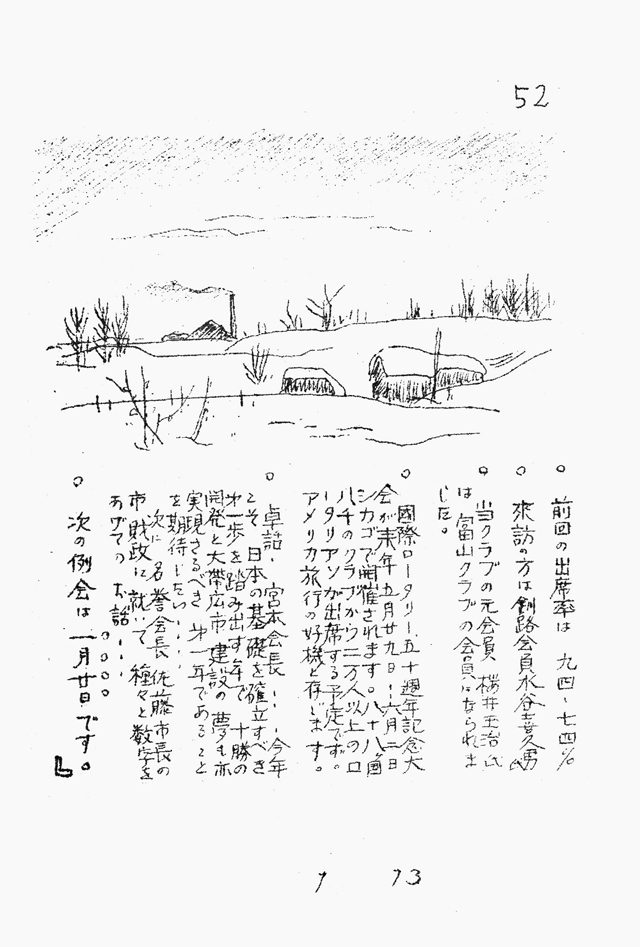 52
○ 前回の出席率は 九四・七四％
○ 来訪の方は釧路会員水谷喜久男氏
○ 当クラブの元会員 桜井玉治氏
は 富山クラブの会員になられま
した。
○ 國際ロータリー五十週年記念大
会が来年五月廿九日－六月二日
シカゴで開催されます。八十八ヶ国
八千のクラブから二万人以上のロ
ータリアンが出席する予定です。
アメリカ旅行の好機と存じます。
○ 卓話・宮本会長・・・今年
こそ 日本の基礎を確立すべき
第一歩を踏み出す年で 十勝の
開発と大帯広市建設の夢も亦
実現さるべき 第一年であること
を期待したい・・・
次に 名誉会長 佐藤市長の
市財政に就いて 種々と数字を
あげての お話・・・
○ 次の例会は 一月廿日です。
1 13